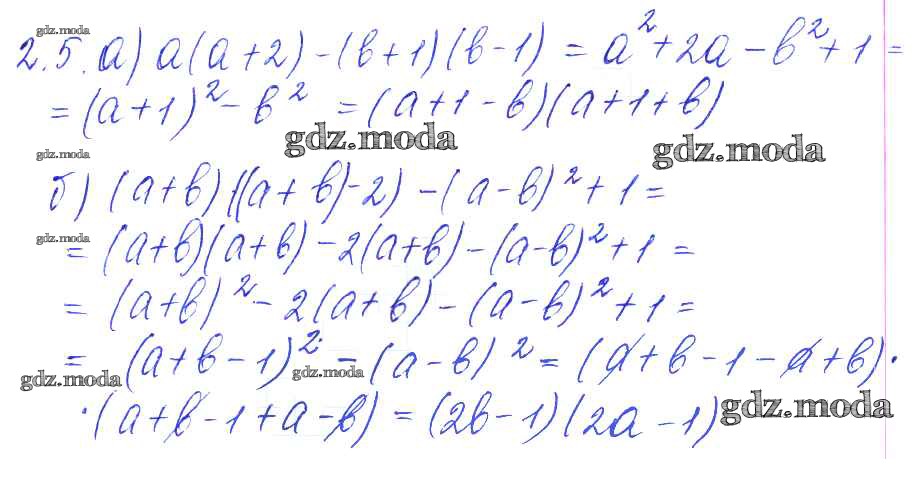 gdz.moda
2.5. а) a(a+2) - (b+1)(b-1) = a² + 2a - b² + 1 =
= (a+1)² - b² = (a+1-b)(a+1+b)
gdz.moda
gdz.moda
gdz.moda
б) (a+b)((a+b)-2) - (a-b)² + 1 =
gdz.moda
= (a+b)(a+b) - 2(a+b) - (a-b)² + 1 =
= (a+b)² - 2(a+b) - (a-b)² + 1 =
= (a+b-1)² - (a-b)² = (a+b-1-a+b)·
gdz.moda
gdz.moda
·(a+b-1+a-b) = (2b-1)(2a-1)
gdz.moda